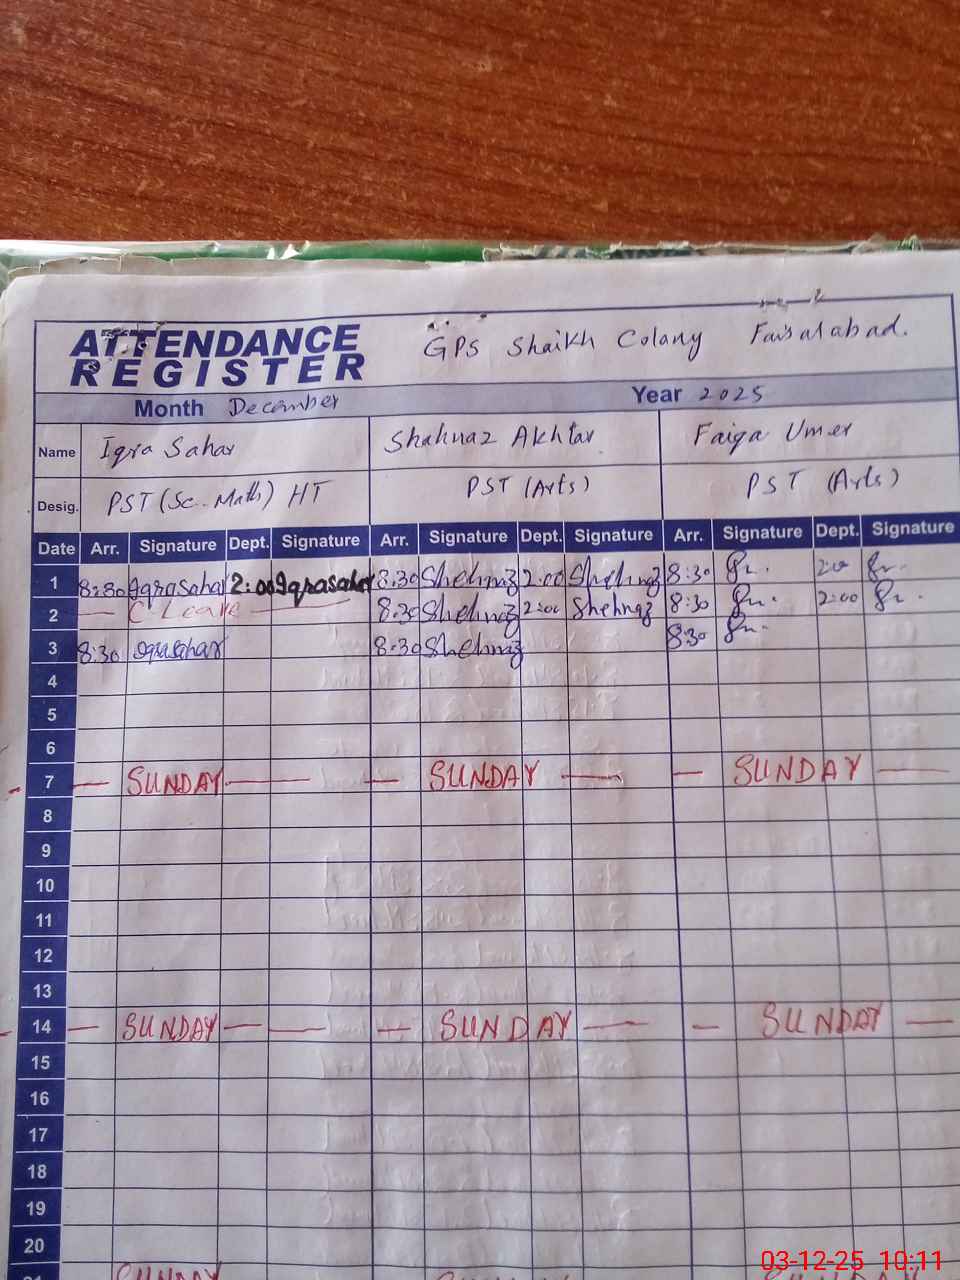 ATTENDANCE
REGISTER
GPS Shaikh Colany Faisalabad.
Month December Year 2025
Name Iqra Sahar Shahnaz Akhtar Faiqa Umer
Desig. PST (Sc. Math) HT PST (Arts) PST (Arts)
Date Arr. Signature Dept. Signature Arr. Signature Dept. Signature Arr. Signature Dept. Signature
1 8:30 Iqrasahar 2:00 Iqrasahar 8:30 Shehnaz 2:00 Shehnaz 8:30 2:00
2 C Leave 8:30 Shehnaz 2:00 Shehnaz 8:30 2:00
3 8:30 Iqrasahar 8:30 Shehnaz 8:30
4
5
6
7 SUNDAY SUNDAY SUNDAY
8
9
10
11
12
13
14 SUNDAY SUNDAY SUNDAY
15
16
17
18
19
20
21 SUNDAY
03-12-25 10:11